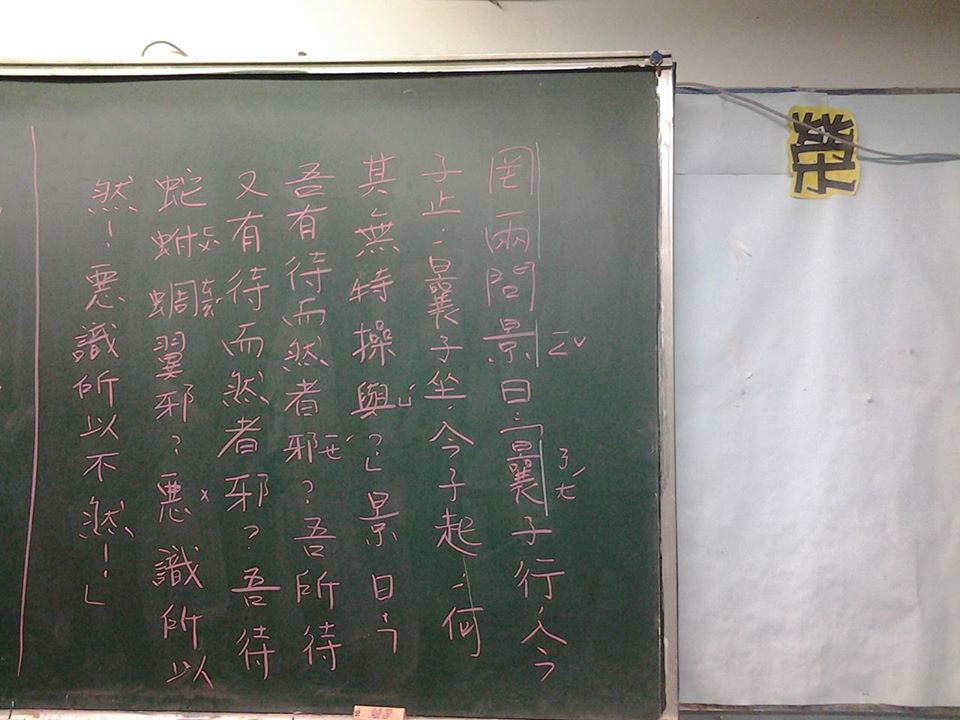 罔兩問景曰：「曩子行，今
子止；曩子坐，今子起；何
其無特操與？」景曰：「
吾有待而然者邪？吾所待
又有待而然者邪？吾待
蛇蚹蜩翼邪？惡識所以
然！惡識所以不然！」